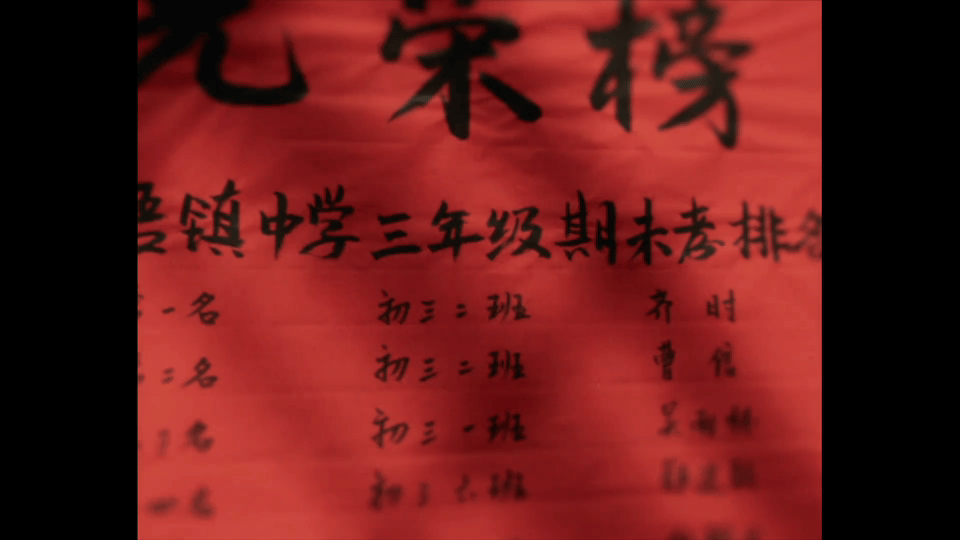 光荣榜
镇中学三年级期末考排名
第一名 初三二班 齐时
第二名 初三二班 曹信
名 初三一班
四名 初三六班